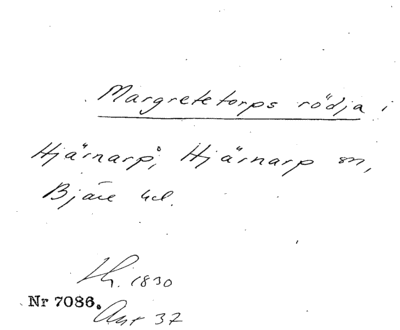 Margretetorps rödja i
Hjärnarp, Hjärnarp sn,
Bjäre hd.
1830
Nr 7086.
37